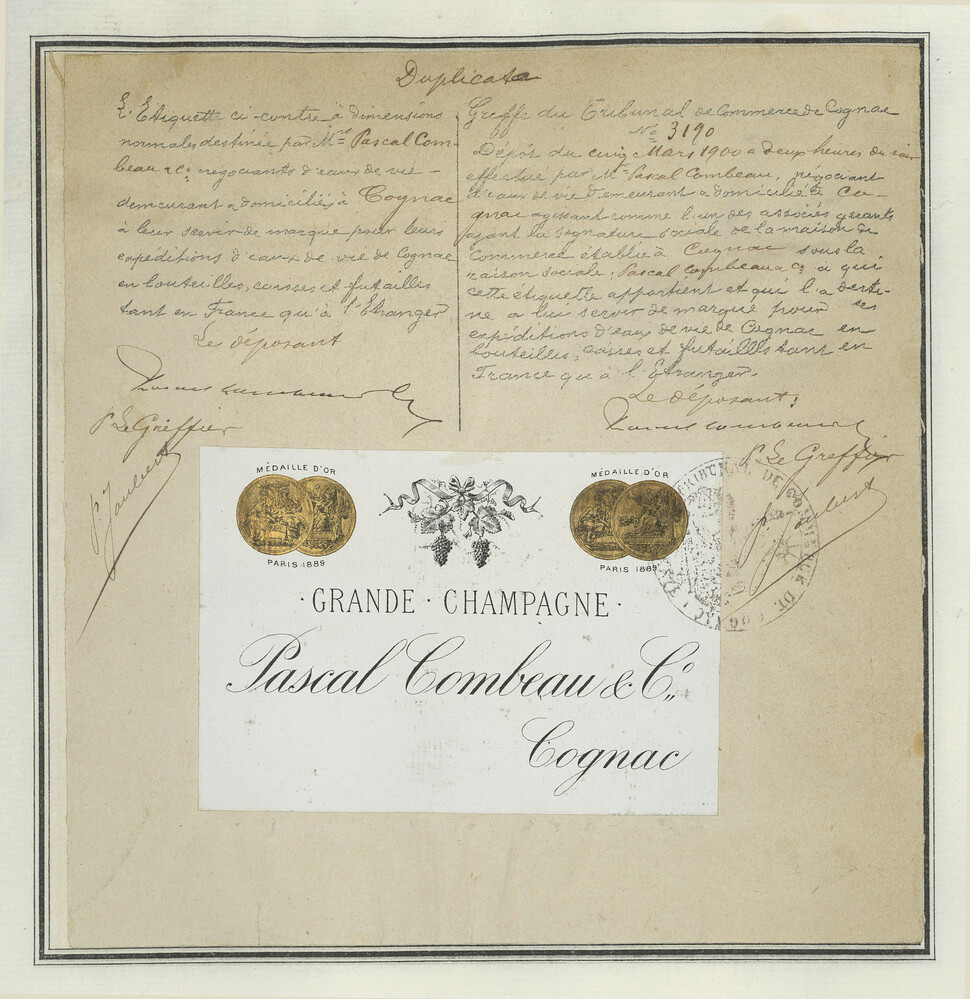 Duplicata
L'Etiquette ci-contre à dimensions
normales destinée par Mrs Pascal Com-
beau & Co négociants d'eaux de vie -
demeurant & domiciliés à Cognac
à leur servir de marque pour leurs
expéditions d'eaux de vie de Cognac
en bouteilles, caisses et futailles
tant en France qu'à l'Etranger
Le déposant
Pr Le Greffier
Joubert
Greffe du Tribunal de Commerce de Cognac
No 3190
Dépôt du cinq Mars 1900 à deux heures du soir
effectué par Mr Pascal Combeau, négociant
d'eaux de vie demeurant & domicilié à Co-
gnac agissant comme l'un des associés gérants
ayant la signature sociale de la maison de
Commerce établie à Cognac sous la
raison sociale: Pascal Combeau & Co à qui
cette étiquette appartient et qui l'a desti-
né à lui servir de marque pour ses
expéditions d'eaux de vie de Cognac en
bouteilles, caisses et futailles tant en
France qu'à l'Etranger.
Le déposant:
Pr Le Greffier
Joubert
TRIBUNAL DE COMMERCE DE COGNAC
MÉDAILLE D'OR
PARIS 1889
MÉDAILLE D'OR
PARIS 1889
· GRANDE · CHAMPAGNE ·
Pascal Combeau & Co.,
Cognac